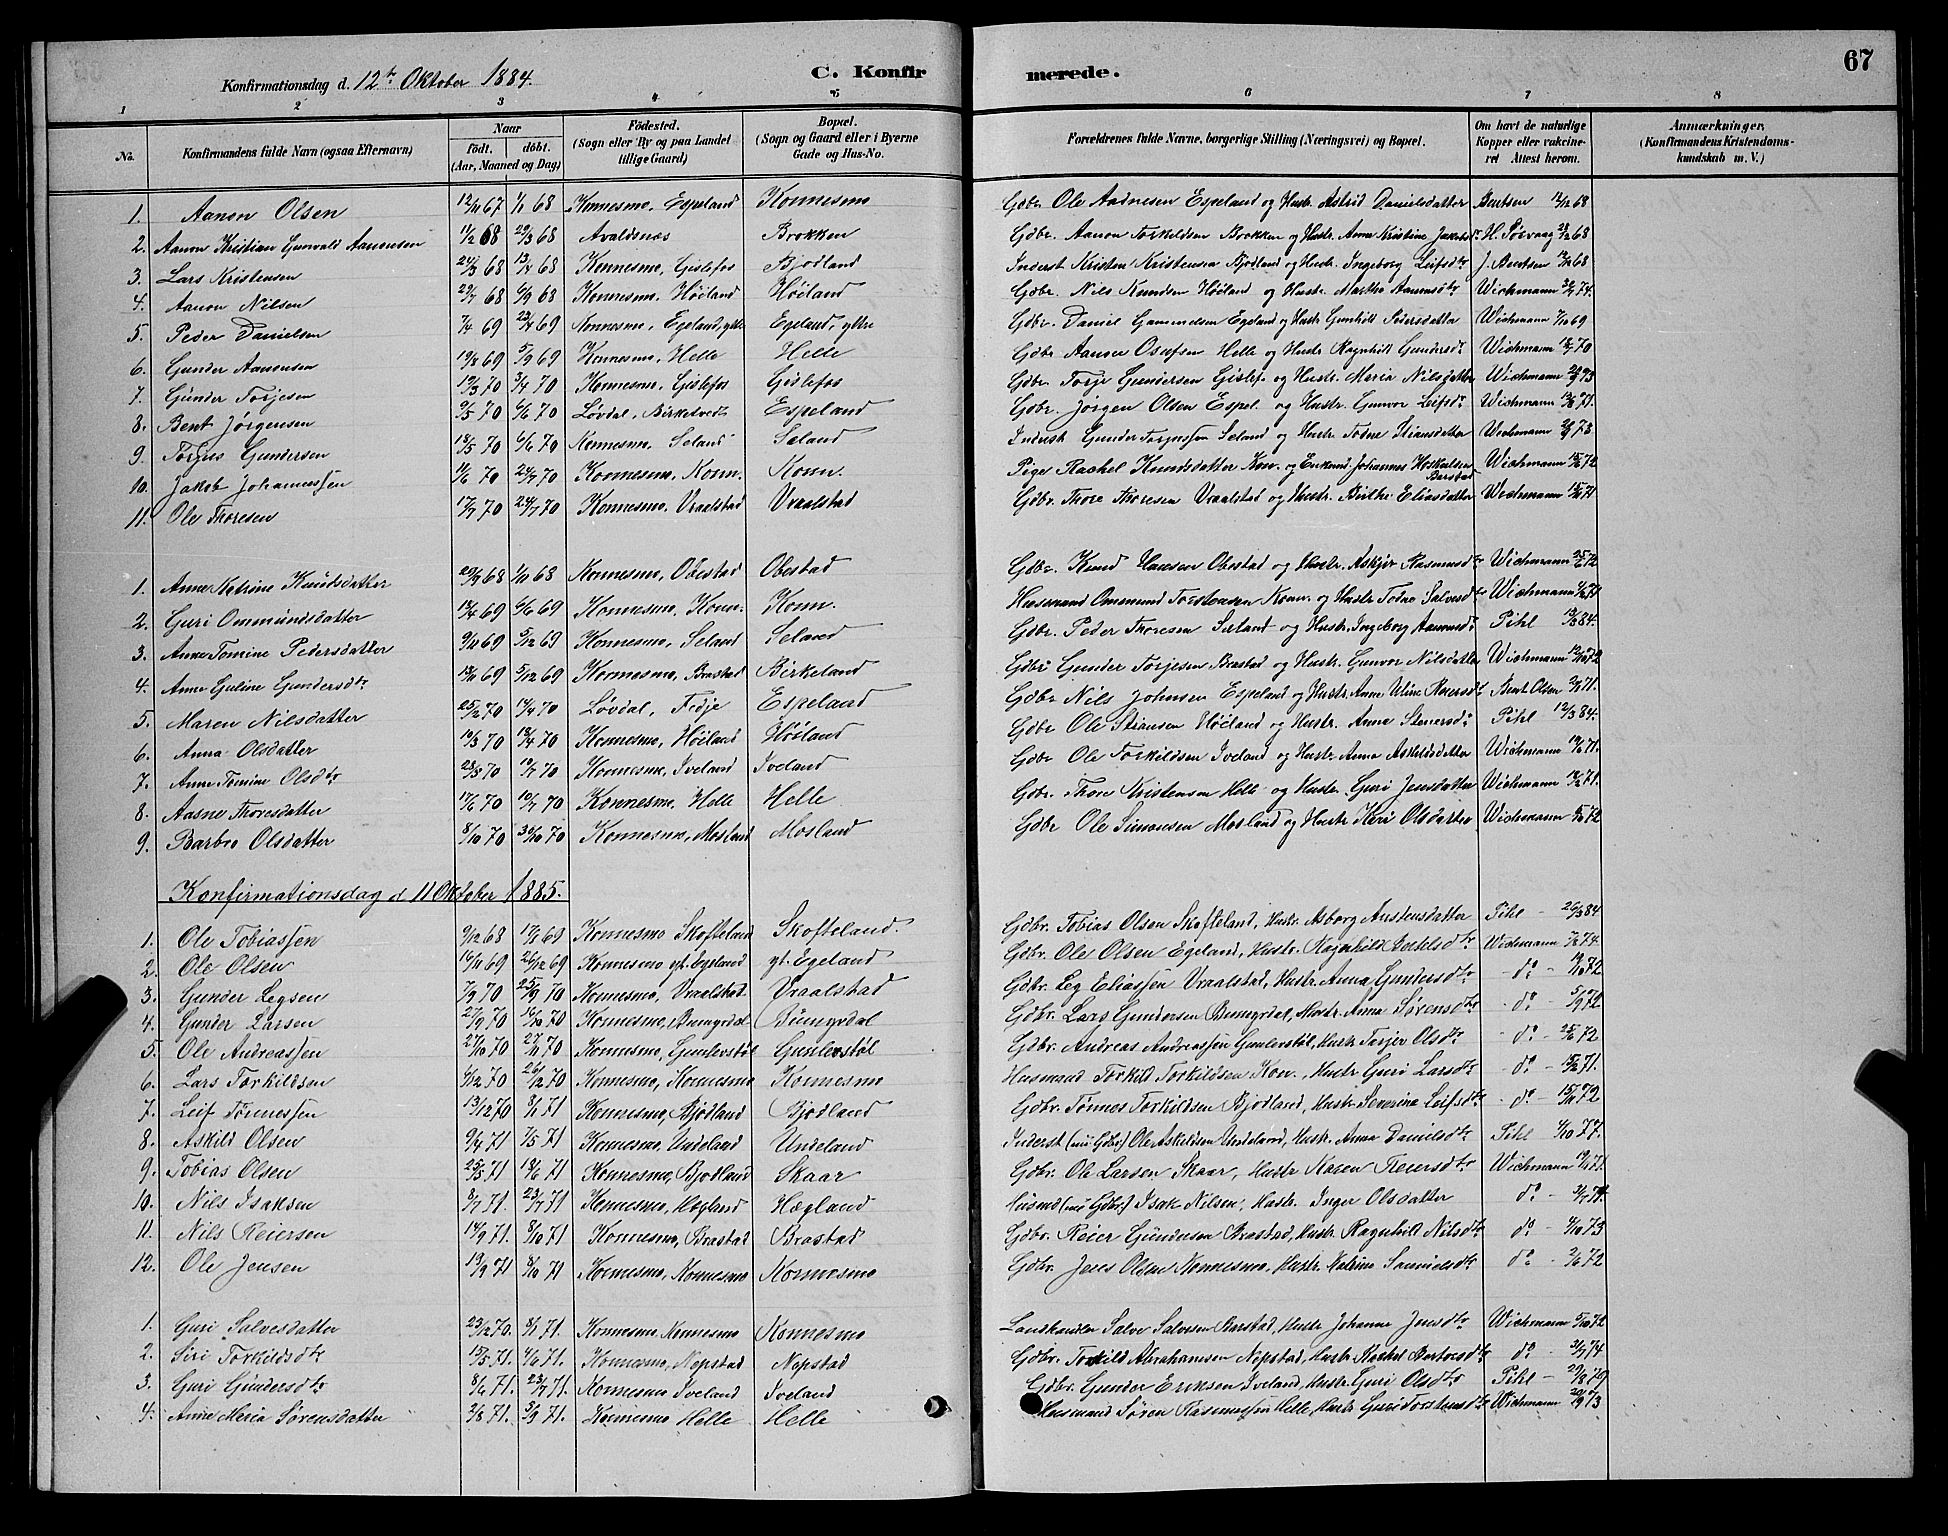 67
Konfirmationsdag d. 12te Oktober 1884. C. Konfirmerede.
1 2 3 4 5 6 7 8
No. Konfirmandens fulde Navn (ogsaa Efternavn) Naar födt. döbt. (Aar, Maaned og Dag) Födested. (Sogn eller By og paa Landet tillige Gaard) Bopæl. (Sogn og Gaard eller i Byerne Gade og Hus-No. Forældrenes fulde Navne, borgerlige Stilling (Næringsvei) og Bopæl. Om havt de naturlige Kopper eller vakcineret Attest herom. Anmærkninger, (Konfirmandens Kristendomskundskab m. V.)
1. Aanon Olsen 12/11 67 1/1 68 Konnesmo, Espeland Konnesmo Gdbr. Ole Aadnesen Espeland og Hustr. Astrid Danielsdatter Bentsen 12/12 68
2. Aanon Kristian Gunvald Aanonsen 11/2 68 29/3 68 Avaldsnæs Brokken Gdbr. Aanon Torkildsen Brokken og Hustr. Anne Kristine Jakobsd.
3. Lars Kristensen 24/3 68 13/4 68 Konnesmo, Gislefos Bjodland Inderst Kristen Kristensen Bjodland og Hustr. Ingeborg Leifsdtr J. Bentsen 68
4. Aanon Nilsen 29/7 68 6/9 68 Konnesmo, Höiland Höiland Gdbr. Nils Knudsen Höiland og Hustr. Marthe Aanonsdtr Wichmann 74.
5. Peder Danielsen 7/4 69 69 Konnesmo, Egeland, ytre Egeland, ytre Gdbr. Daniel Gammelsen Egeland og Hustr Gunhild Pedersdatter Wichmann 69
6. Gunder Aanonsen 19/8 69 5/9 69 Konnesmo, Helle Helle Gdbr Aanon Osufsen Helle og Hustr Ragnhild Gundersdr Wichmann 70
7. Gunder Torjesen 19/3 70 3/4 70 Konnesmo, Gislefos Gislefos Gdbr. Torje Gundersen Gislef. og Hustr. Maria Nilsdatter Wichmann 73
8. Bent Jörgensen 9/5 70 6/6 70 Lövdal, Birketvedt Espeland Gdbr. Jörgen Olsen Espel. og Hustr. Gunvor Leifsdr Wichmann 71.
9. Torjus Gundersen 18/5 70 6/6 70 Konnesmo, Seland Seland Inderst Gunder Torjussen Seland og Hustr Todne Stiansdatter Wichmann 73
10. Jakob Johannessen 11/6 70 24/7 70 Konnesmo, Konn. Konn. Pige Rachel Knudsdatter Kon. og Enkmd. Johannes Barstad Wichmann 72
11. Ole Thoresen 17/7 70 24/7 70 Konnesmo, Vraalstad Vraalstad Gdbr. Thore Thoresen Vraalstad og Hustr. Birthe Eliasdatter Wichmann 71
1. Anne Katrine Knudsdatter 20/9 68 1/11 68 Konnesmo, Obestad Obestad Gdbr. Knud Hansen Obestad og Hustr. Askjer Rasmusdtr Wichmann 72
2. Guri Ommundsdatter 18/4 69 6/6 69 Konnesmo, Konn. Konn. Husmand Ommund Torstensen Konn. og Hustr Todne Salvesdtr Wichmann 71
3. Anne Tomine Pedersdatter 9/11 69 5/12 69 Konnesmo, Seland Seland Gdbr. Peder Thoresen Seland og Hustr, Ingeborg Aanonsdr Pihl 84.
4. Anne Guline Gundersdtr 18/11 69 5/12 69 Konnesmo, Brastad Birkeland Gdbr Gunder Torjesen Brastad og Hustr. Gunvor Nilsdatter Wichmann 72
5. Maren Nilsdatter 25/2 70 70 Lövdal, Fidje Espeland Gdbr Nils Johnsen Espeland og Hustr Anne Reiersdt Bent Olsen 71.
6. Anna Olsdatter 10/3 70 18/4 70 Konnesmo, Höiland Höiland Gdbr Ole Stiansen Höiland og Hustr. Anna Stenersdr Pihl 12/3 84.
7. Anne Tomine Olsdtr 23/5 70 10/7 70 Konnesmo, Iveland Iveland Gdbr Ole Torkildsen Iveland og Hustr Anna Askildsdatter Wichmann 71.
8. Aasne Thoresdatter 17/6 70 10/7 70 Konnesmo, Helle Helle Gdbr. Thore Kristensen Helle og Hustr. Guri Jensdatter Wichmann 71.
9. Barbro Olsdatter 8/10 70 30/10 70 Konnesmo, Mosland Mosland Gdbr Ole Simonsen Mosland og Hustr Keri Olsdatter Wichmann 72
Konfirmationsdag d 11 Oktober 1885.
1. Ole Tobiassen 9/12 68 17/1 69 Konnesmo Skofteland Skofteland. Gdbr. Tobias Olsen Skofteland, Hustr. Asborg Austensdatter Pihl - 26/3 84
2. Ole Olsen 16/11 69 26/12 69 Konnesmo yt. Egeland yt. Egeland Gdbr. Ole Olsen Egeland, Hustr. Ragnhild Wichmann 74.
3. Gunder Legsen 7/9 70 25/9 70 Konnesmo, Vraalstad. Vraalstad Gdbr. Leg Eliassen Vraalstad, Hustr. Anna Gundersdtr - do - 72
4. Gunder Larsen 27/9 70 16/10 70 Konnesmo, Bumyrdal Bumyrdal Gdbr. Lars Gundersen Bumyrdal, Hustr. Anna Sörensdtr - do - 5/9 72
5. Ole Andreassen 27/10 70 27/11 70 Konnesmo, Gunlevstöl Gunlevstöl Gdbr. Andreas Andreassen Gunlevstöl, Hustr Torjer Olsdtr - do - 72
6. Lars Torkildsen 4/12 70 26/12 70 Konnesmo, Konnesmo Konnesmo Husmand Torkild Torkildsen Kon., Hustr Guri Larsdtr - do - 71.
7. Leif Tönnessen 13/12 70 8/1 71 Konnesmo, Bjodland Bjodland Gdbr. Tönnes Torkildsen Bjodland, Hustr Severine Leifsdtr - do - 72
8. Askild Olsen 9/4 71 7/5 71 Konnesmo, Undeland Undeland Inderst (nu Gdbr.) Ole Askildsen Undeland, Hustr. Anna Danielsdtr Pihl 77.
9. Tobias Olsen 25/5 71 18/6 71 Konnesmo, Bjodland Skaar Gdbr. Ole Larsen Skaar, Hustr Karen Reiersdtr Wichmann 71.
10. Nils Isaksen 8/7 71. 23/7 71 Konnesmo, Hægland Hægland Husmd (nu Gdbr.) Isak Nilsen, Hustr. Inger Olsdatter do -
11. Nils Reiersen 14/9 71. 8/10 71 Konnesmo, Brastad Brastad Gdbr. Reier Gundersen Brastad, Hustr. Ragnhild Nilsdtr do - 73
12. Ole Jensen 19/9 71 8/10 71 Konnesmo, Konnesmo Konnesmo Gdbr. Jens Olsen Konnesmo, Hustr. Katrine Samuelsdtr do - 72
1. Guri Salvesdatter 23/12 70. 8/1 71. Konnesmo, Konnesmo Konnesmo Landhandler Salve Salvesen Barstad, Hustr Johanne Jensdtr Wichmann 72
2. Siri Torkildsdtr 15/5 71. 4/6 71. Konnesmo, Nepstad Nepstad Gdbr. Torkild Abrahamsen Nepstad, Hustr Rachel Bertesdtr do - 74
3. Guri Gundersdtr 8/6 71. 23/7 71. Konnesmo Iveland Iveland Gdbr. Gunder Eriksen Iveland, Hustr. Guri Olsdtr Pihl - 79
4. Anne Meria Sörensdatter 2/8 71. 3/9 71. Konnesmo Helle Helle Husmand Sören Rasmussen Helle, Hustr Guri Torstensdtr Wichmann 73